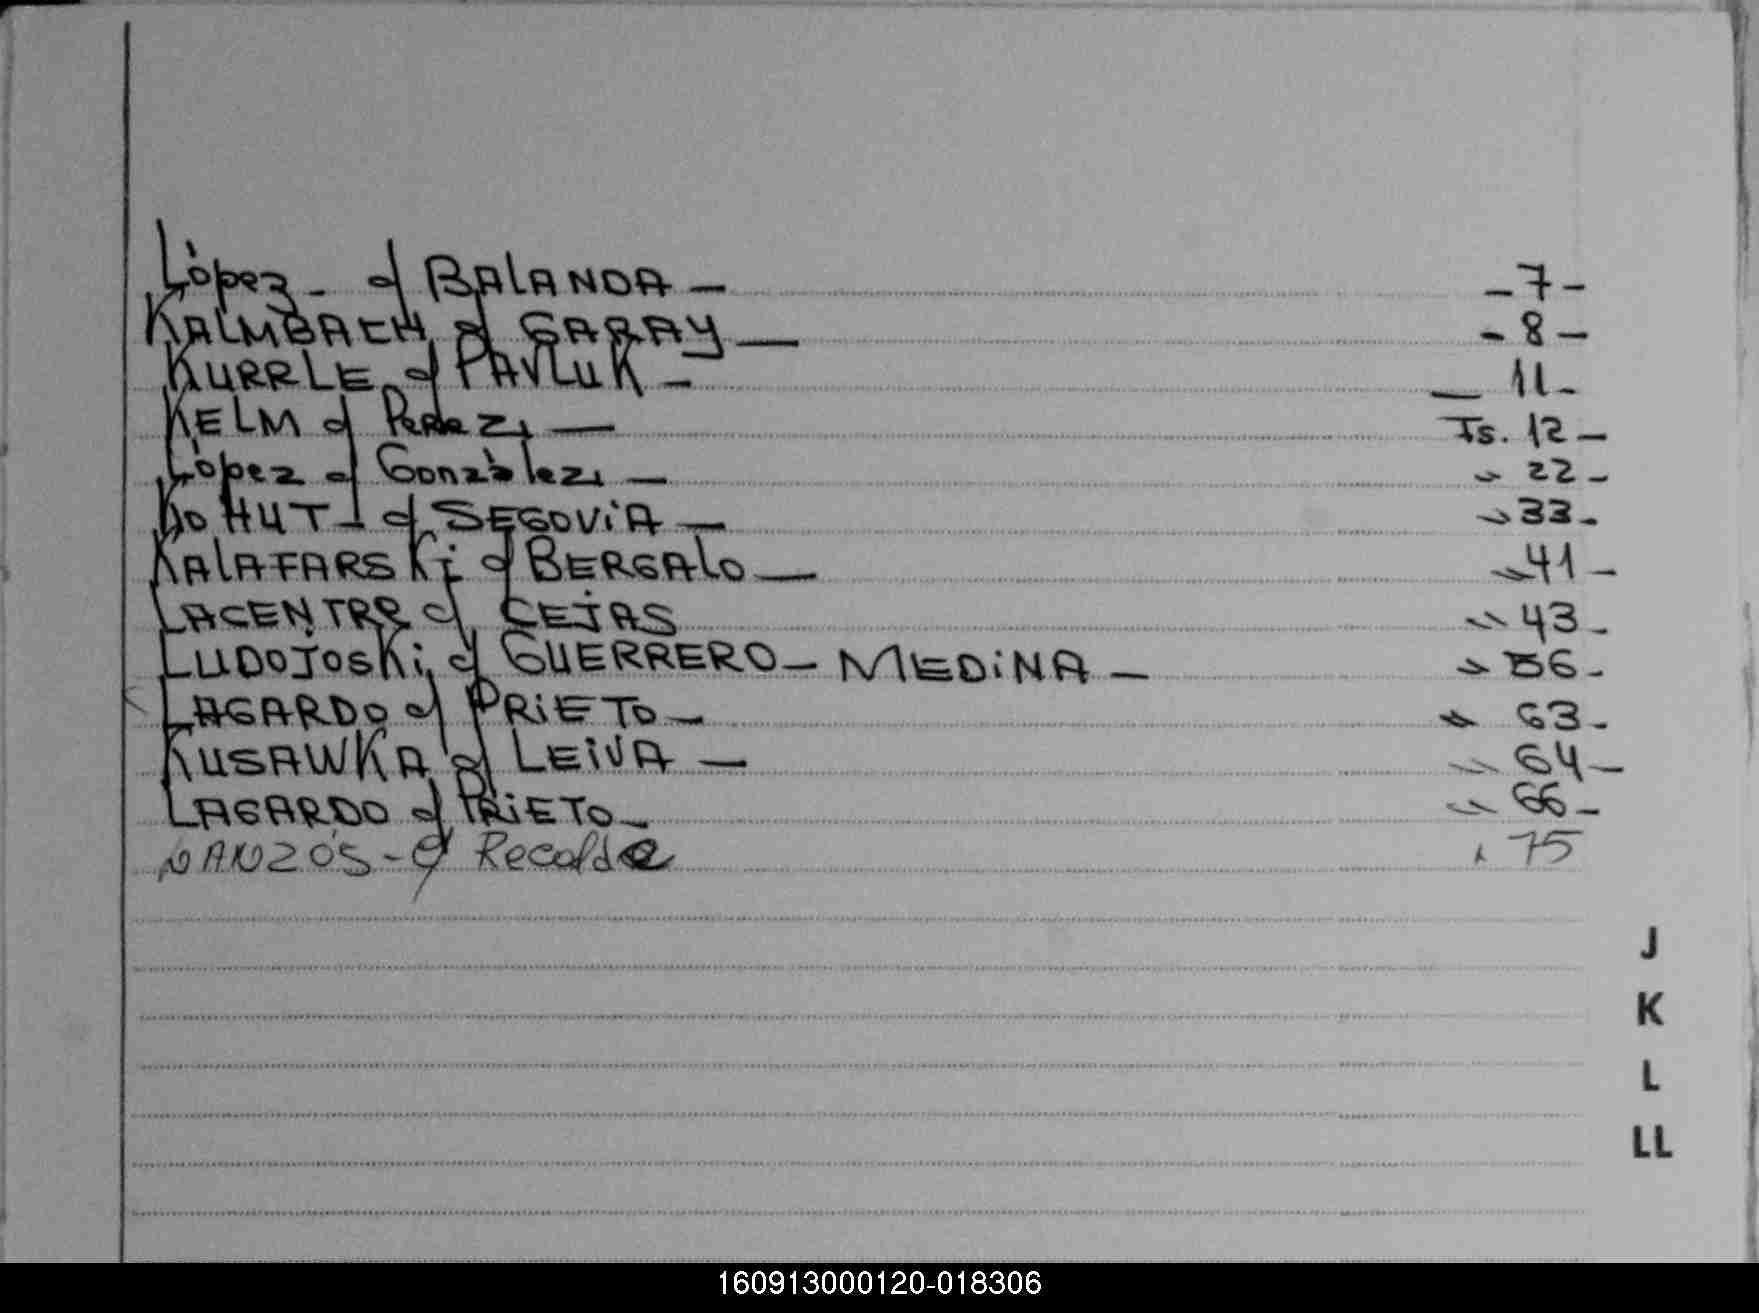 López - c/ BALANDA - - 7 -
KALMBACH c/ GARAY - - 8 -
KURRLE c/ PAVLUK - - 11 -
KELM c/ Perez - Is. 12 -
López c/ González - " 22 -
KOHUT - c/ SEGOVIA - " 33 -
KALAFARSKi c/ BERGALO - " 41 -
LACENTRE c/ CEJAS " 43 -
LUDOJOSKi c/ GUERRERO - MEDiNA - " 56 -
LAGARDO c/ PRiETO - " 63 -
KUSAWKA c/ LEiVA - " 64 -
LAGARDO c/ PRiETO - " 66 -
c/ Recalde " 75
J
K
L
LL
160913000120-018306